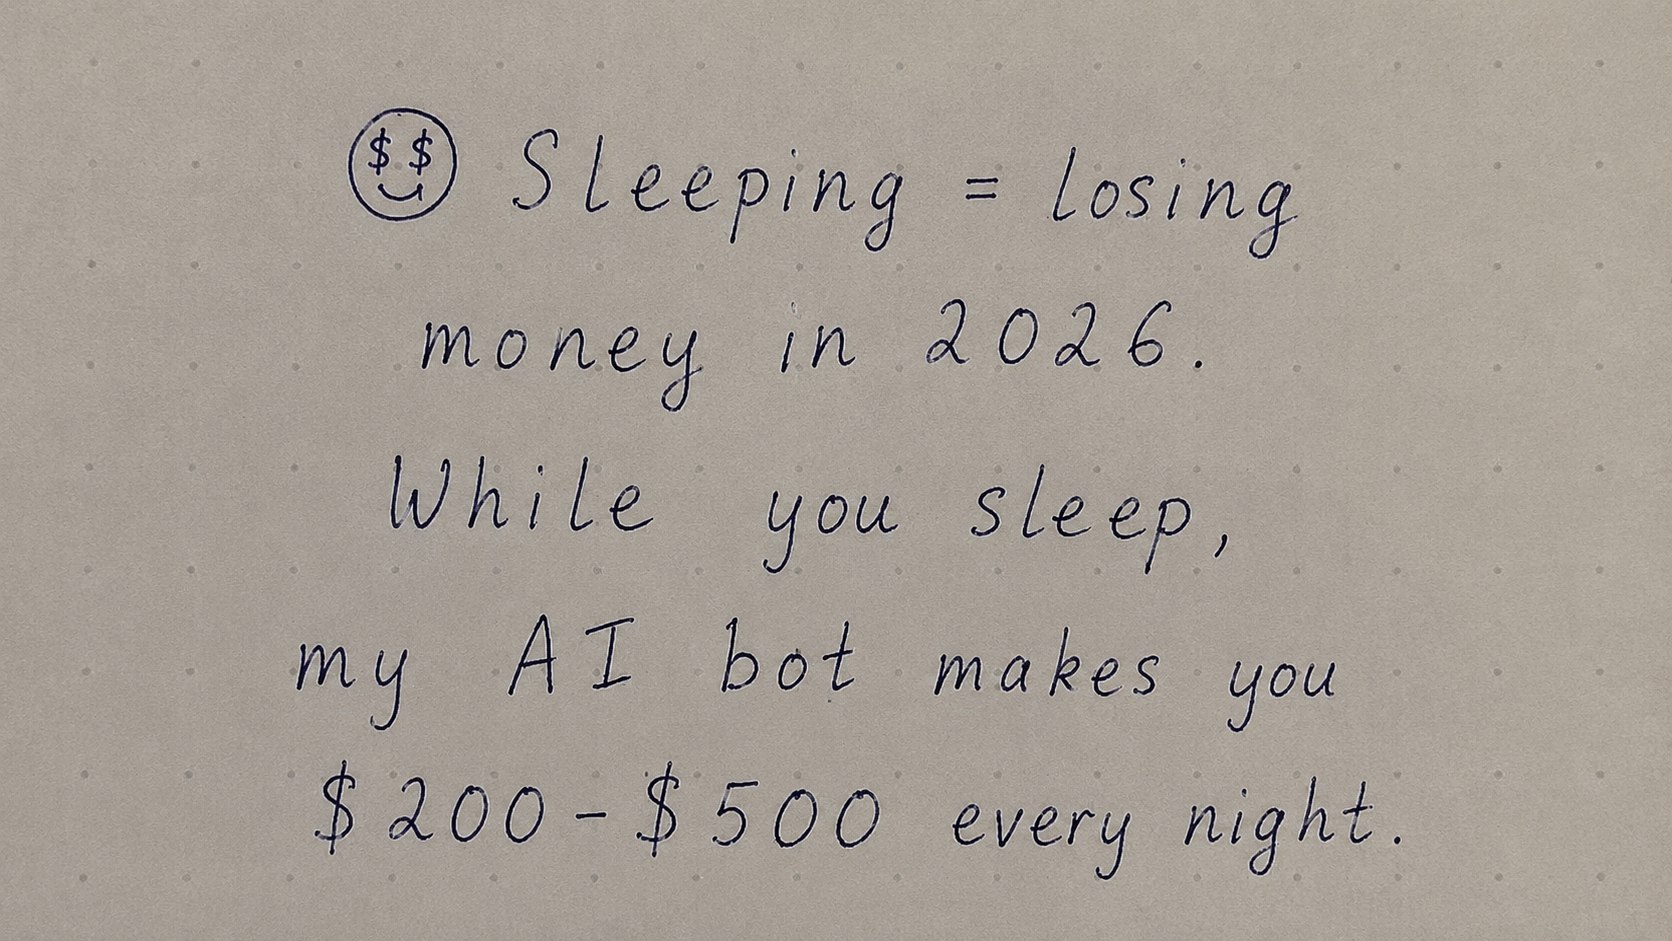 Sleeping = losing
money in 2026.
While you sleep,
my AI bot makes you
$200-$500 every night.